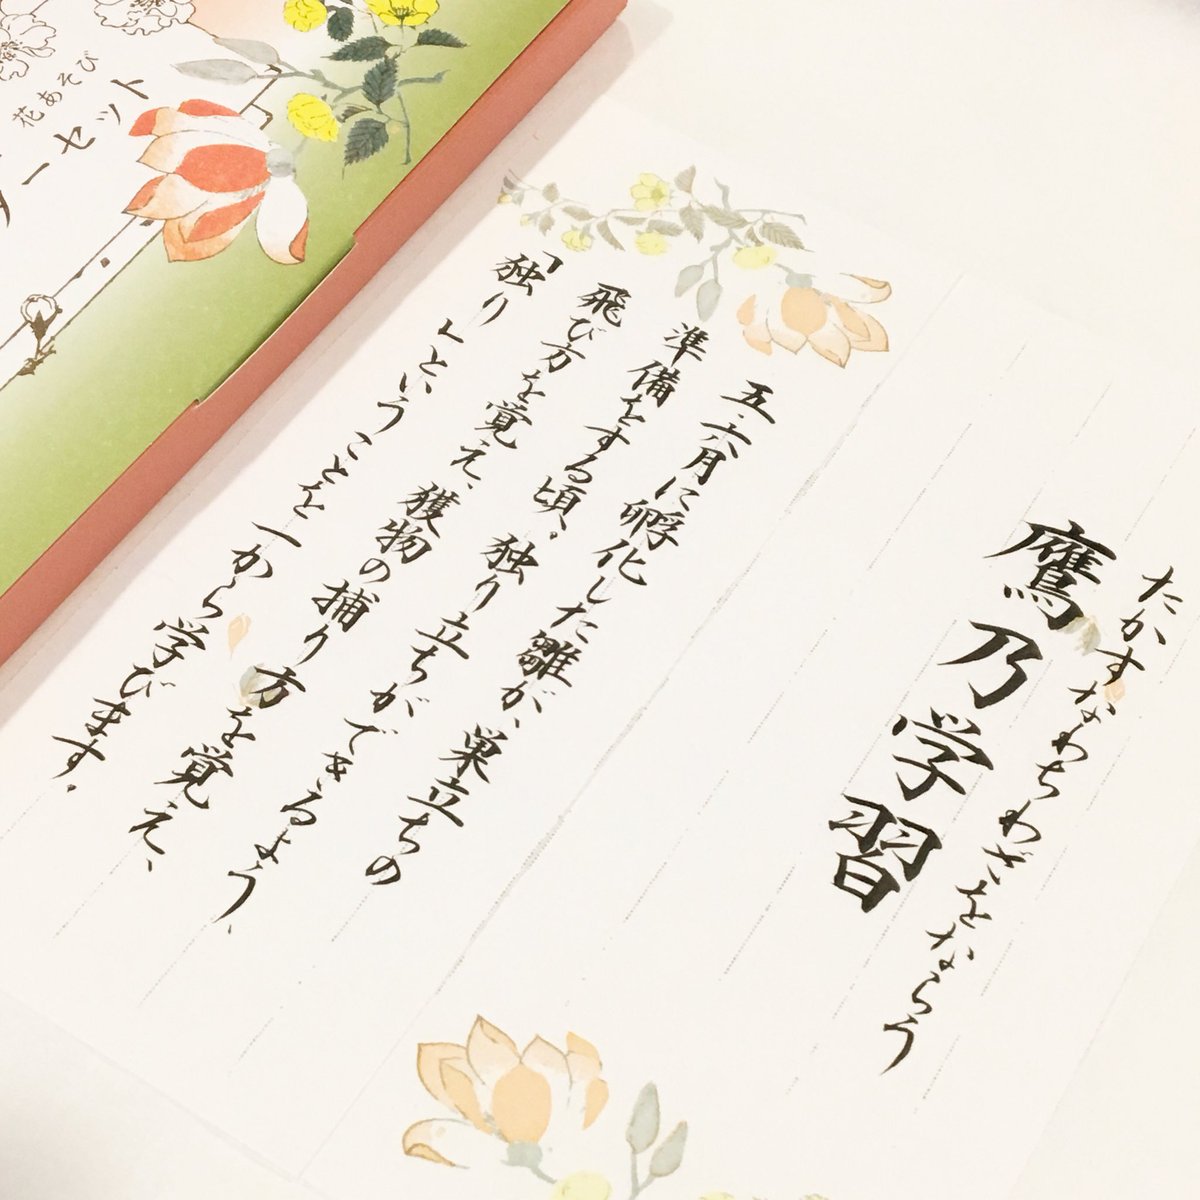 たかすなわちわざをならう
鷹乃学習
五・六月に孵化した雛が、巣立ちの
準備をする頃。独り立ちができるよう、
飛び方を覚え、獲物の捕り方を覚え、
「独り」ということを一から学びます。
花あそび
ーセット